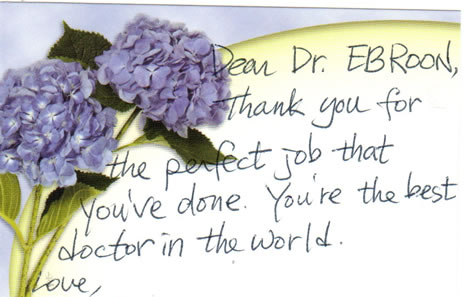 Dear Dr. EBROON,
Thank you for
the perfect job that
you've done. You're the best
doctor in the world.
Love,